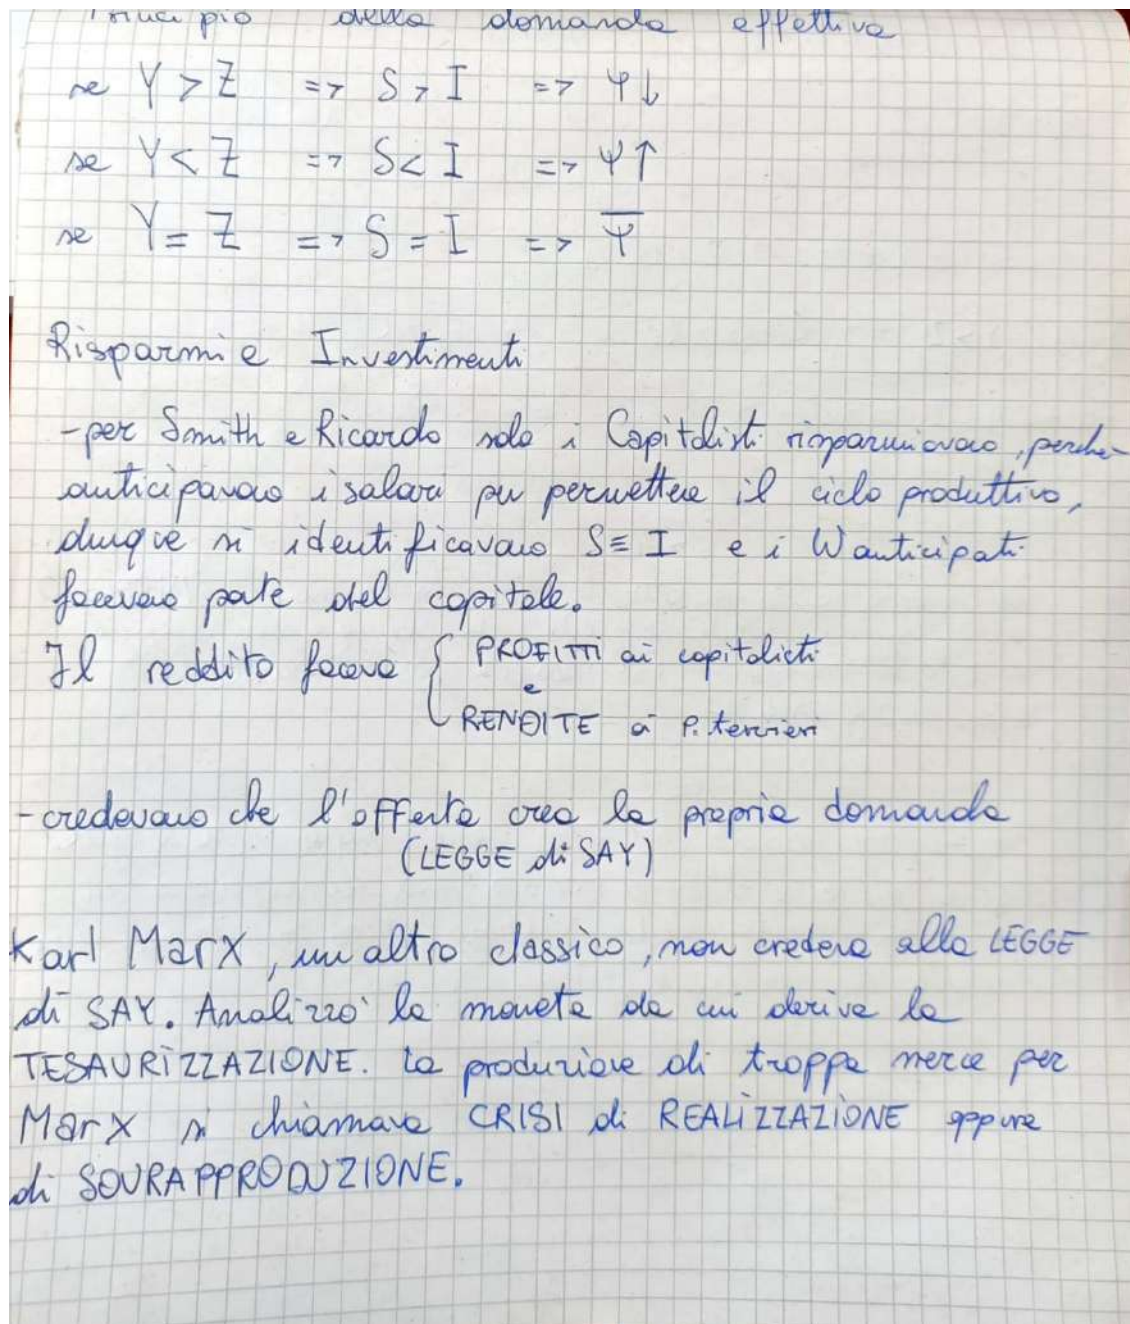 Principio della domanda effettiva
se Y > Z => S > I => Ψ↓
se Y < Z => S < I => Ψ↑
se Y = Z => S = I => Ψ̅
Risparmi e Investimenti
-per Smith e Ricardo solo i Capitalisti risparmiavano, perché
anticipavano i salari per permettere il ciclo produttivo,
dunque si identificavano S≡I e i W anticipati
facevano parte del capitale.
Il reddito faceva { PROFITTI ai capitalisti
e
RENDITE ai P. terrieri
-credevano che l'offerta crea la propria domanda
(LEGGE di SAY)
Karl Marx, un altro classico, non credeva alla LEGGE
di SAY. Analizzò la moneta da cui deriva la
TESAURIZZAZIONE. La produzione di troppa merce per
Marx si chiamava CRISI di REALIZZAZIONE oppure
di SOVRAPPRODUZIONE.